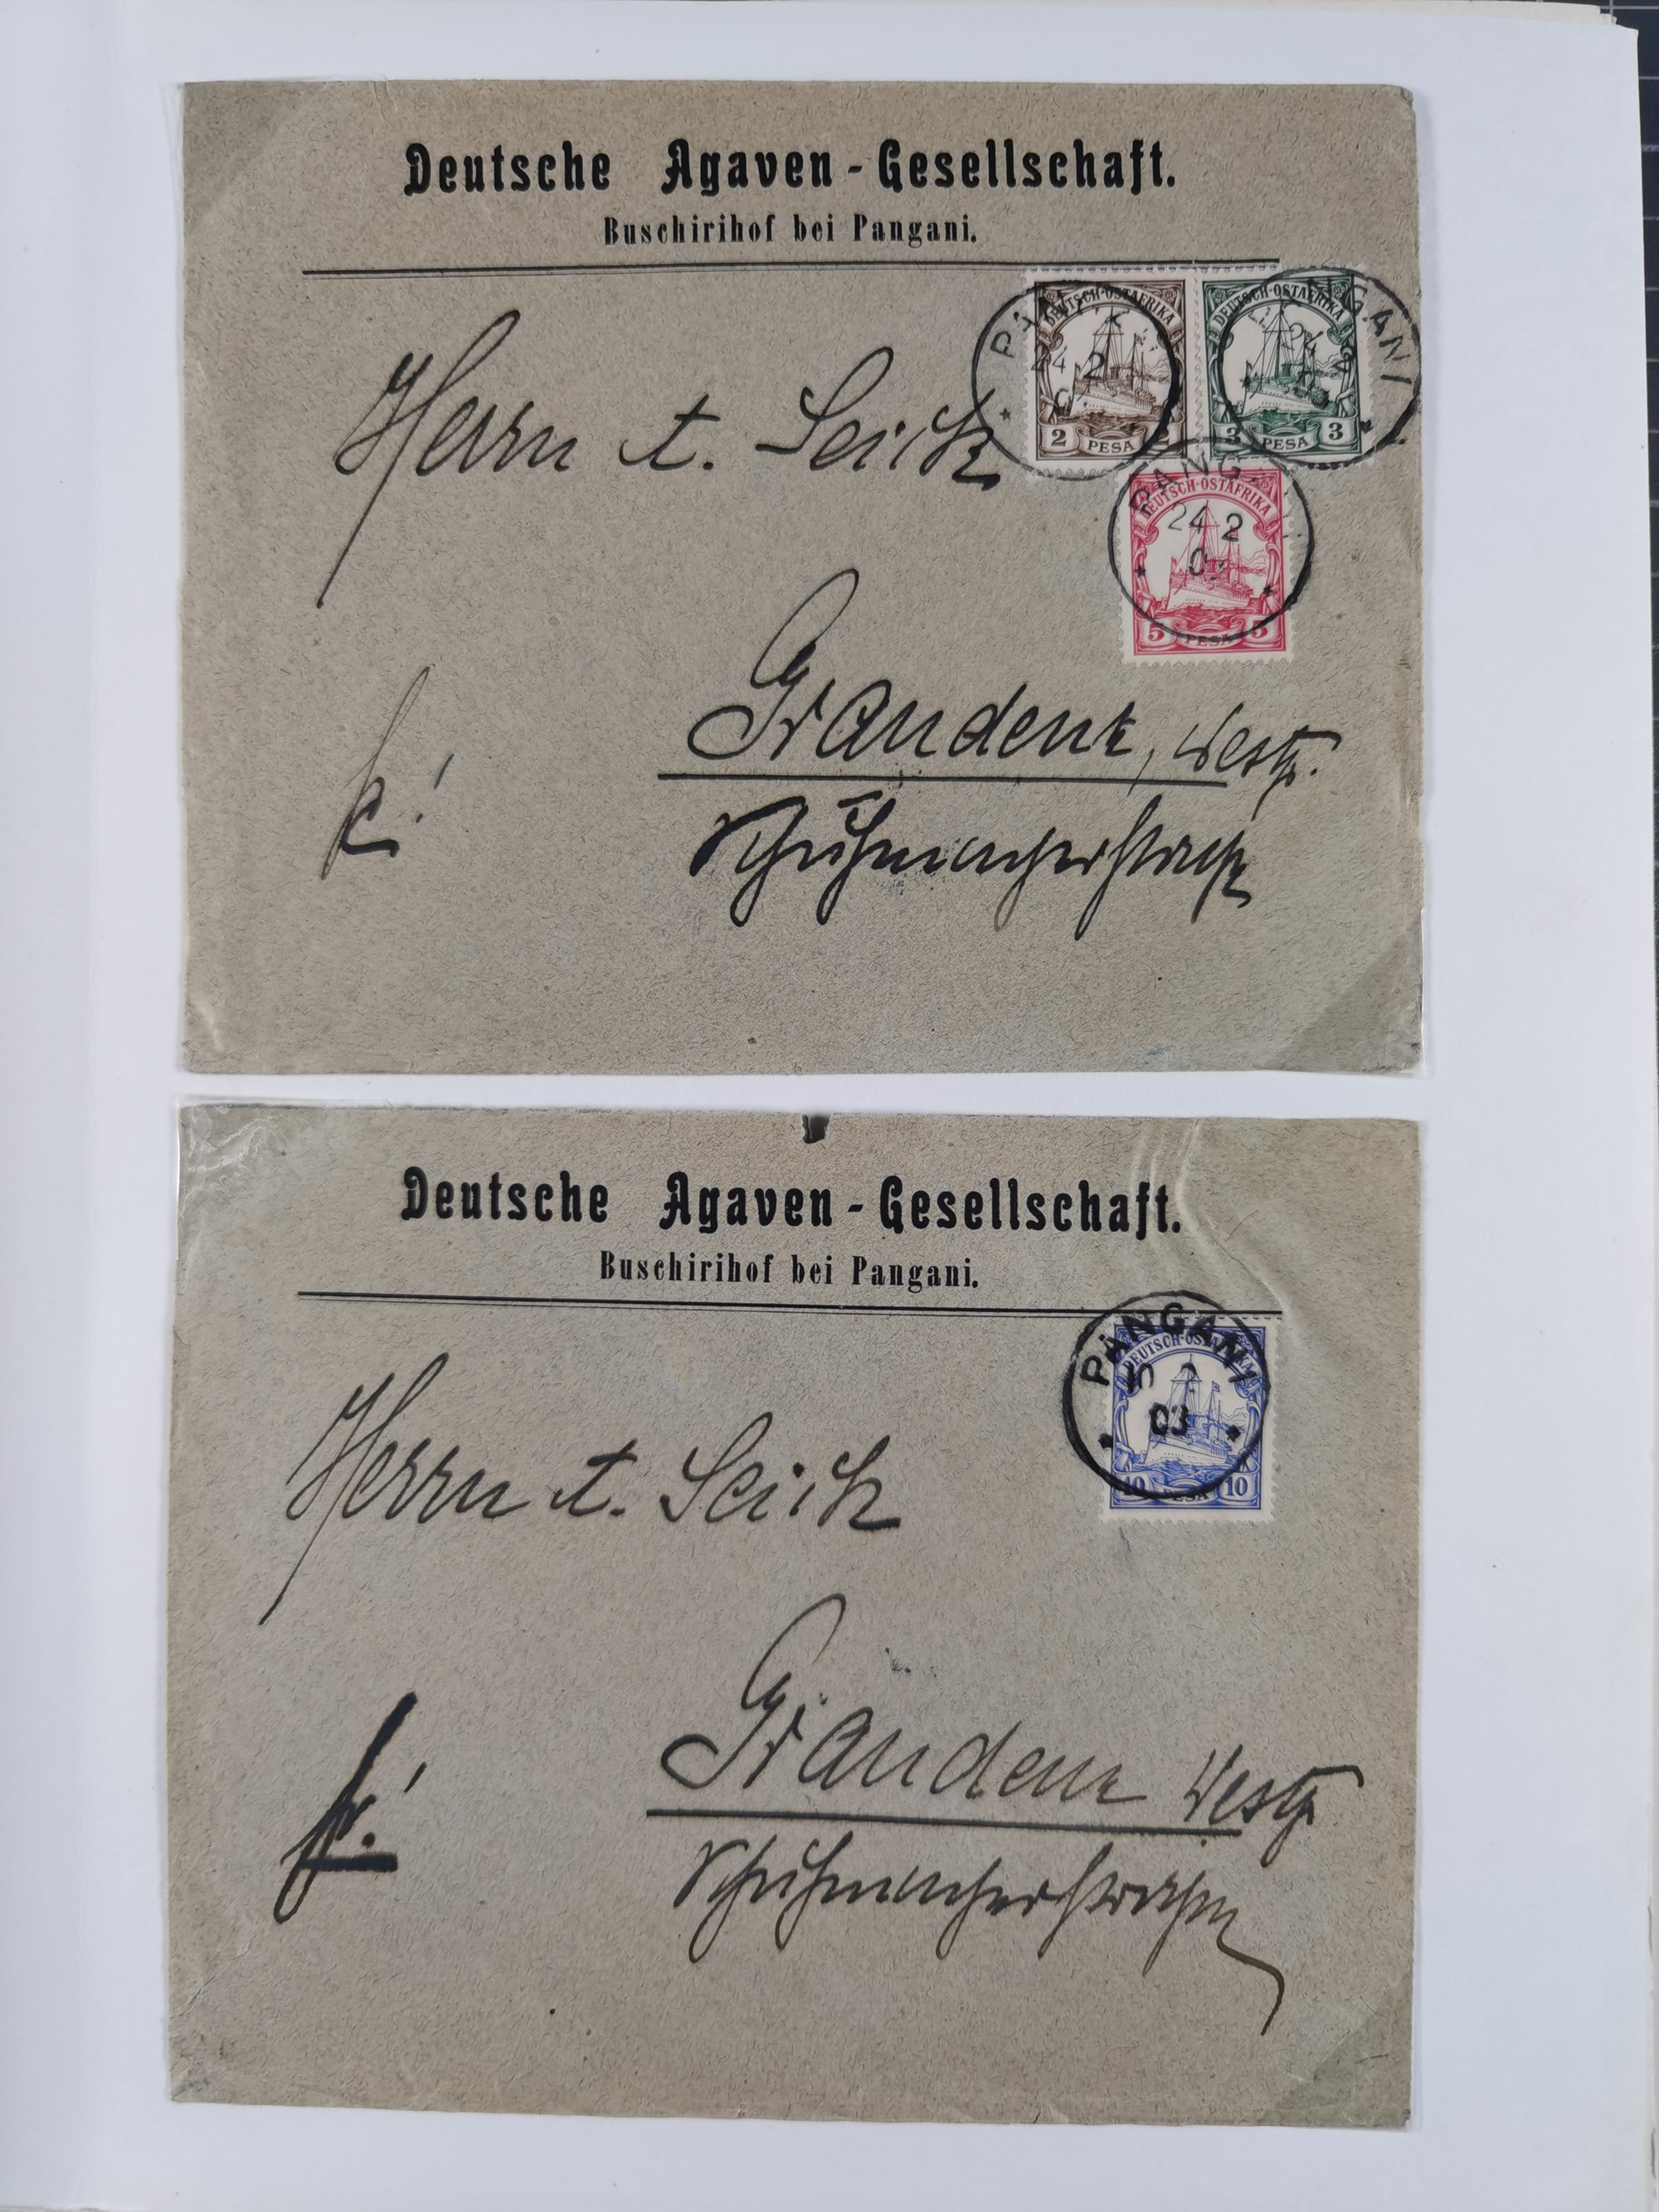 Deutsche Agaven-Gesellschaft.
Buschirihof bei Pangani.
DEUTSCH-OSTAFRIKA
2 PESA 2
DEUTSCH-OSTAFRIKA
3 PESA 3
PANGANI
Herrn t. Seick
DEUTSCH-OSTAFRIKA
5 PESA 5
PANGANI
24 2
Graudenz, Westpr.
Schuhmacherstrasse
Deutsche Agaven-Gesellschaft.
Buschirihof bei Pangani.
DEUTSCH-OSTAFRIKA
10 PESA 10
PANGANI
03
Herrn t. Seick
Graudenz Westpr
Schuhmacherstrasse